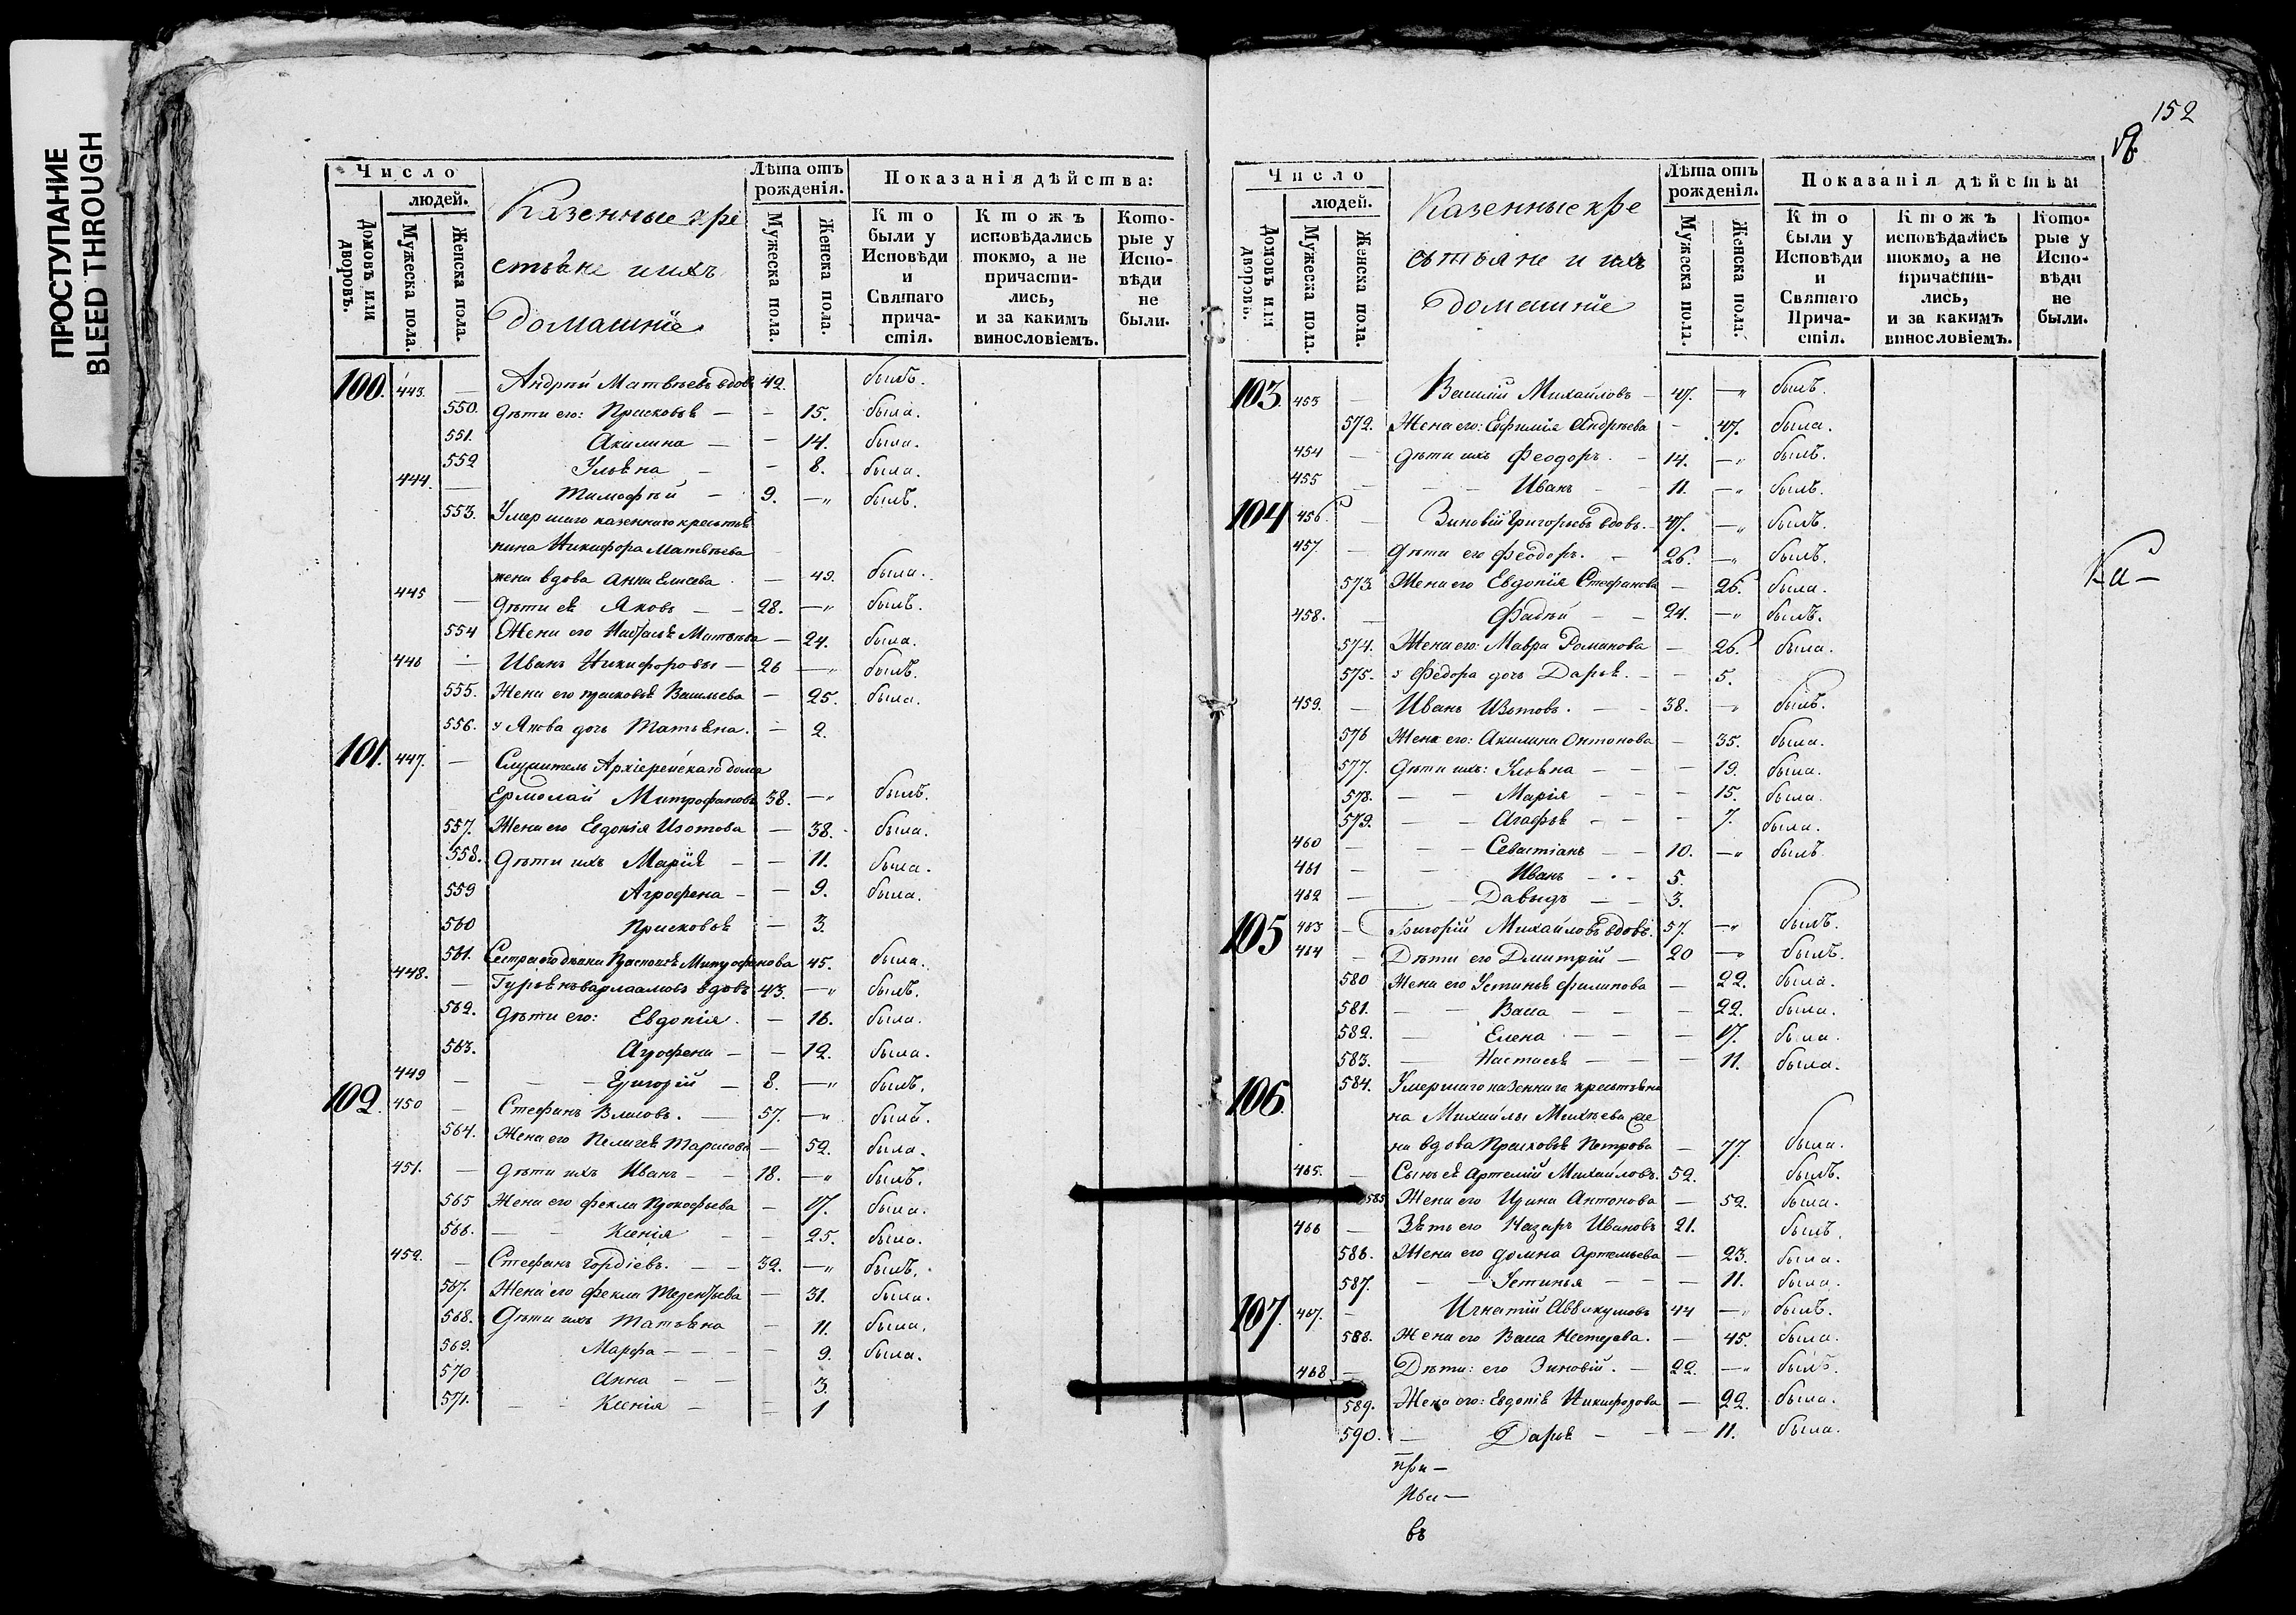 ПРОСТУПАНИЕ
BLEED THROUGH
Число
людей.
Домовъ или дворовъ.
Мужеска пола.
Женска пола.
Казенные кре
стьяне и ихъ
домашніе
Лѣта отъ рожденія.
Мужеска пола.
Женска пола.
Показанія дѣйства:
Кто были у Исповѣди и Святаго причастія.
Ктожъ исповѣдались токмо, а не причастились, и за какимъ винословіемъ.
Которые у Исповѣди не были.
100. 443. — Андрей Матвѣевъ вдов 42. былъ.
550. Дѣти его: Прасковья — - 15. была.
551. Акилина — - 14. была.
552 Ульяна - - 8. была.
444. — Тимофѣй - 9. —„ былъ.
553. Умершаго казеннаго крестья
нина Никифора Матвѣева
жена вдова Анна Елисева — 49. была.
445 — Дѣти ея Яковъ — - 28. —„ былъ.
554 Жена его Настасья Матвѣева — 24. была.
446 — Иванъ Никифоровъ — 26 —„ былъ.
555. Жена его Прасковья Васильева — 25. была.
556. у Якова дочь Татьяна. — 2.
101. 447. — Служитель Архіерейскаго дома
Ермолай Митрофановъ 38. —„ былъ.
557. Жена его Евдокія Изотова — 38. была.
558. Дѣти ихъ Марія - — 11. была.
559 Агрофена - — 9. была.
560 Прасковья — 3.
561. Сестра его Прасковья Митрофанова 45. была.
448. — Гурьянъ Варлаамовъ вдовъ 43. —„ былъ.
562. Дѣти его: Евдокія. — 16. была.
563. Агрофена — - 12. была.
449 — — Григорій — 8. —„ былъ.
102. 450 — Стефанъ Власовъ. — 57. —„ былъ.
564. Жена его Пелагея Тарасова — 52. была.
451. — Дѣти ихъ Иванъ — - 18. —„ былъ.
565 Жена его Фекла Прокофьева — 17. была.
566. — — Ксенія — - 25. была.
452. — Стефанъ Гордіевъ. — - 32. —„ былъ.
567. Жена его Фекла Терентьева — 31. была.
568. Дѣти ихъ Татьяна — 11. была.
569. Марфа — - - - 9. была.
570 Анна — - 3.
571. — - Ксенія — - 1
152
Число
людей.
Домовъ или дворовъ.
Мужеска пола.
Женска пола.
Казенные кре
стьяне и ихъ
домашніе
Лѣта отъ рожденія.
Мужеска пола.
Женска пола.
Показанія дѣйства:
Кто были у Исповѣди и Святаго Причастія.
Ктожъ исповѣдались токмо, а не причастились, и за какимъ винословіемъ.
Которые у Исповѣди не были.
103. 453 — Василій Михайловъ - 47. —„ былъ.
572. Жена его: Ефимія Андрѣева - 47. была.
454 — Дѣти ихъ Феодоръ. - 14. —„ былъ.
455 — - - Иванъ - - 11. —„ былъ.
104 456. — Зиновій Григорьевъ вдовъ. - 47. —„ былъ.
457. — Дѣти его Феодоръ. — 26. —„ былъ.
573. Жена его Евдокія Стефанова - 26. была.
458. — Фадѣй - - 24. —„ былъ.
574. Жена его: Мавра Романова — 26. была.
575. у Федора дочь Дарья. - - 5.
459. — Иванъ Изотовъ. — - 38. —„ былъ.
576 Жена его: Акилина Антонова — 35. была.
577. Дѣти ихъ: Ульяна - - - 19. была.
578. — - Марія - - - 15. была.
579. — - Агафья - - - 7. была.
460 — - - Севастіанъ - - 10. —„ былъ.
461 — - Иванъ - - - 5.
462 — - Давыдъ — - 3.
105 463 — Григорій Михайловъ вдовъ. 57. —„ былъ.
464 — Дѣти его Дмитрій — 20 —„ былъ.
580 Жена его Устинья Филипова — 22. была.
581. — - Васа - - - 22. была.
582. — Елена - - - 17. была.
583. — Настасья - - - 11. была.
106. 584. Умершаго казеннаго крестьяни
на Михайлы Михѣева же
на вдова Прасковья Петрова — 77. была.
465. — Сынъ ея Артемій Михайловъ. 52. былъ.
585 Жена его Ирина Антонова — 52. была.
466 — Зять его Назаръ Ивановъ 21. былъ.
586. Жена его Домна Артемьева — 23. была.
587. — - Устинья - - - 11. была.
107. 467. — Игнатій Аввакумовъ 44 —„ былъ.
588. Жена его Васа Нестерова. — 45. была.
468 — Дѣти: его Зиновій. — 22. —„ былъ.
589. Жена его: Евдокія Никифорова — 22. была.
590. — Дарья - - - 11. была.
Ка—
при—
Ива—
въ